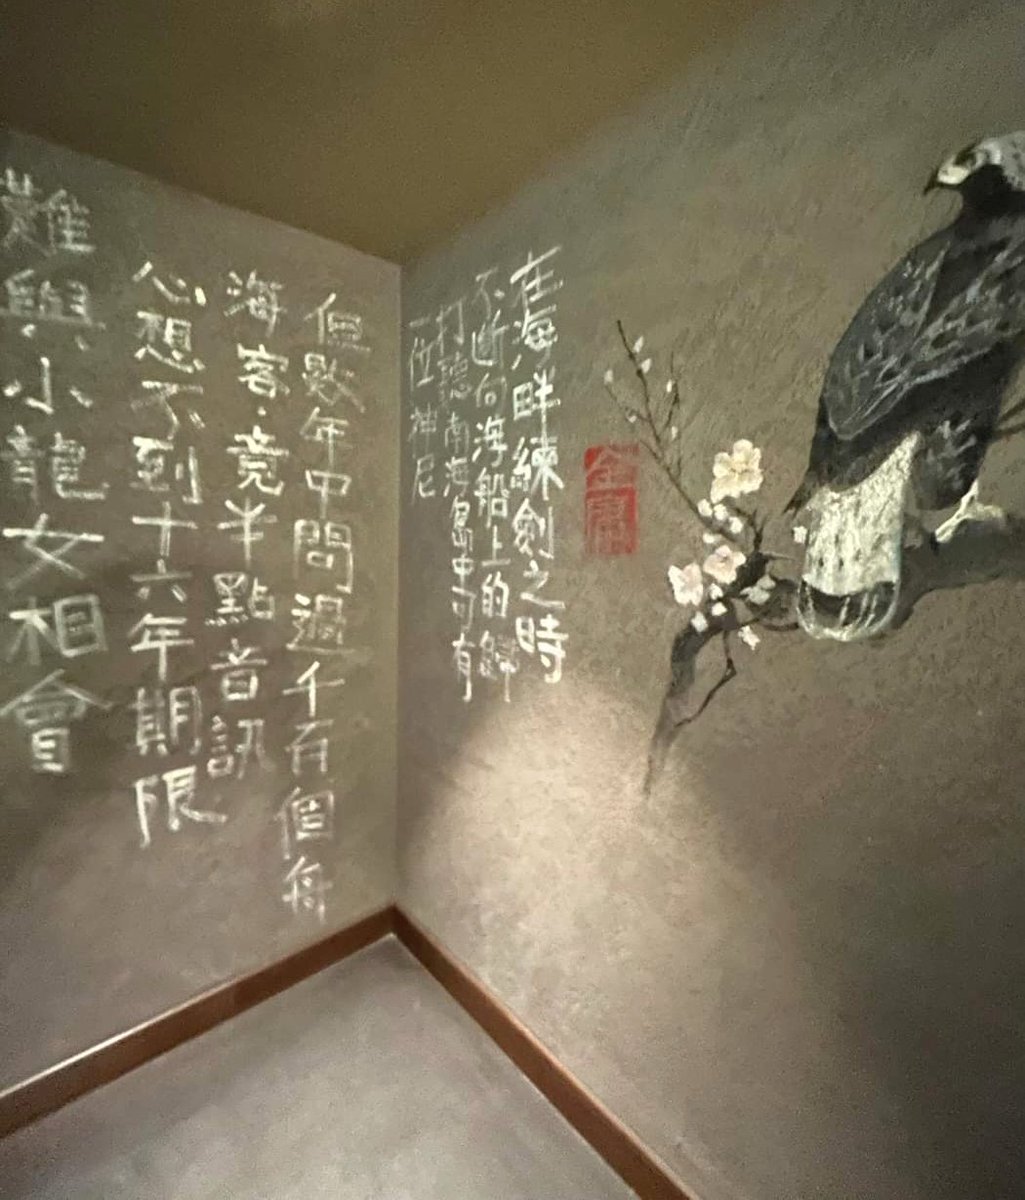 金庸
在海畔練劍之時
不斷向海船上的歸
打聽南海島中可有
一位神尼
但數年中問過千百個每
海客，竟半點音訊
心想不到十六年期限
難與小龍女相會